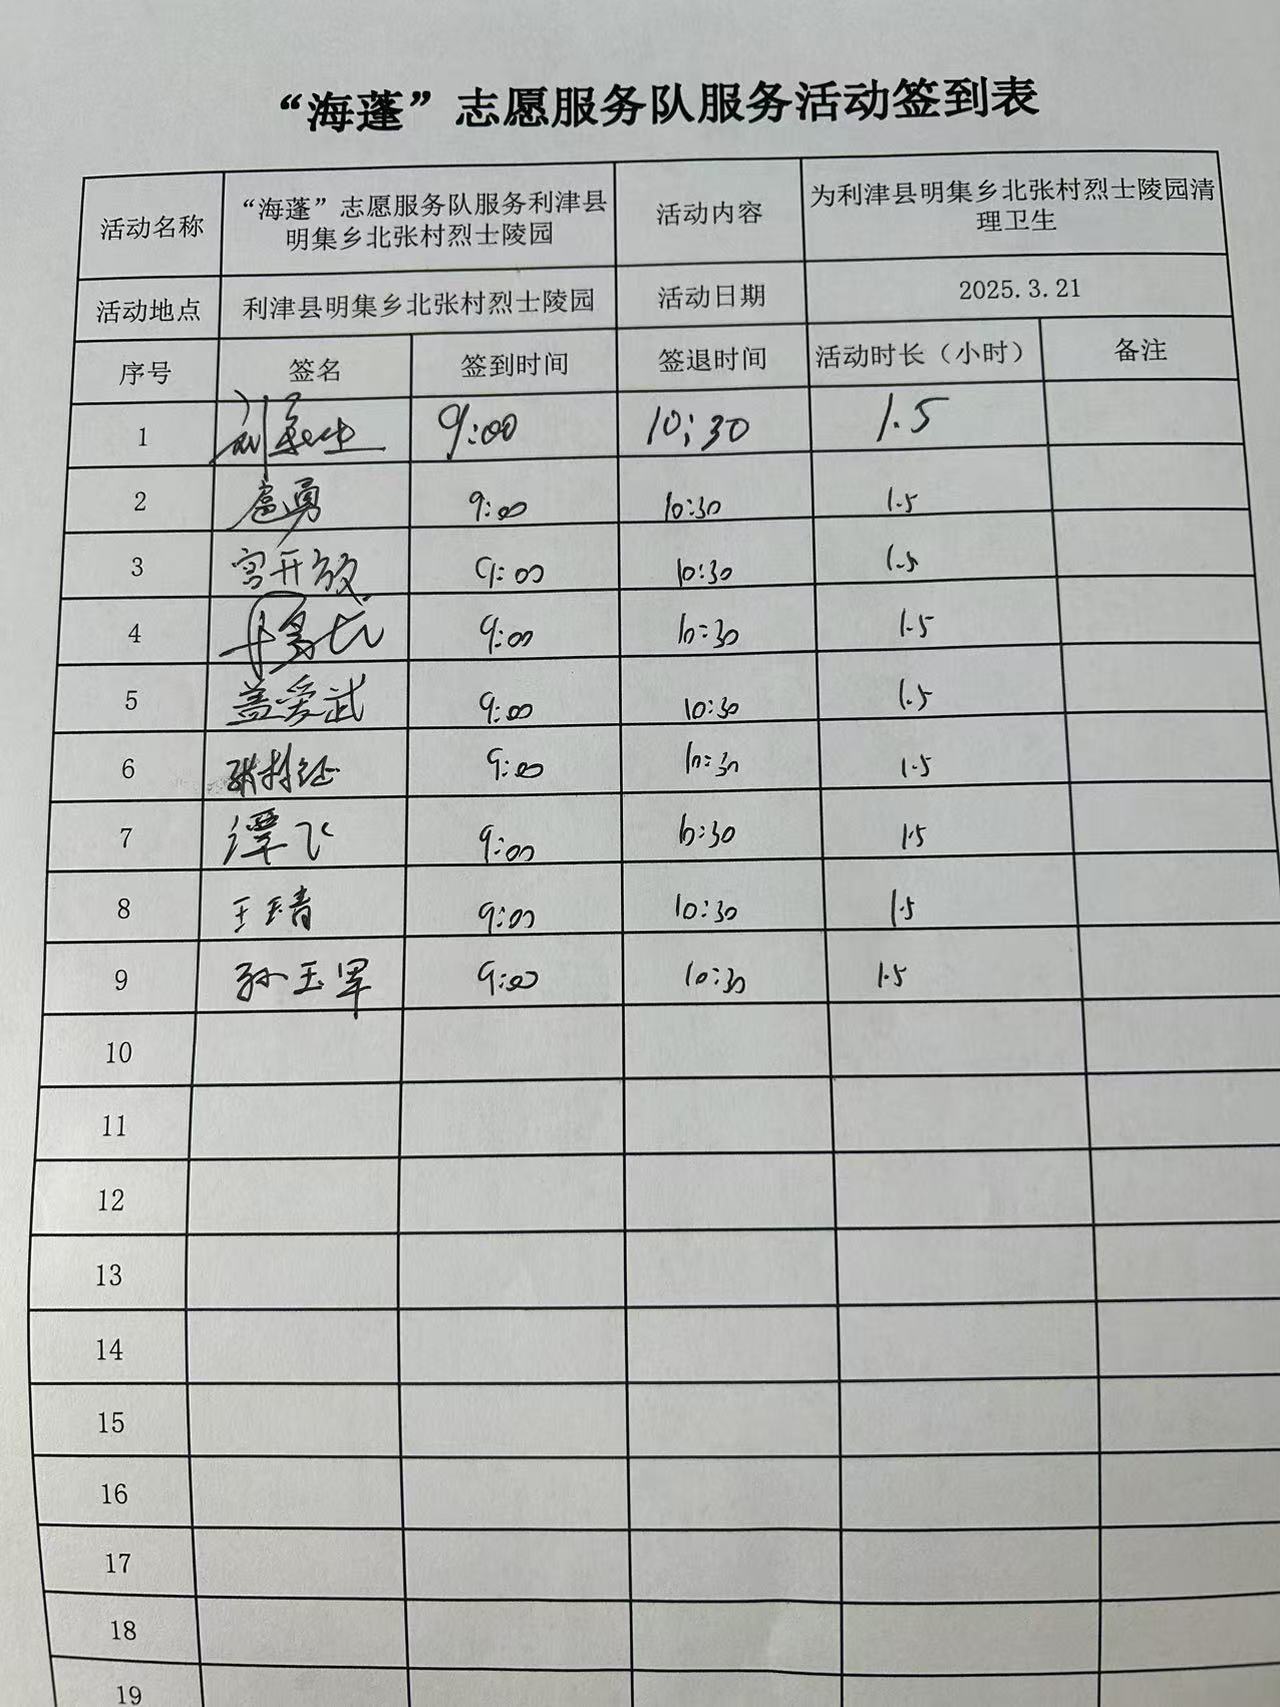 “海蓬”志愿服务队服务活动签到表
活动名称 “海蓬”志愿服务队服务利津县 活动内容 为利津县明集乡北张村烈士陵园清
明集乡北张村烈士陵园 理卫生
活动地点 利津县明集乡北张村烈士陵园 活动日期 2025.3.21
序号 签名 签到时间 签退时间 活动时长（小时） 备注
1 9:00 10:30 1.5
2 9:00 10:30 1.5
3 宫开放 9:00 10:30 1.5
4 9:00 10:30 1.5
5 盖爱武 9:00 10:30 1.5
6 9:00 10:30 1.5
7 谭飞 9:00 10:30 1.5
8 王玉青 9:00 10:30 1.5
9 孙玉军 9:00 10:30 1.5
10
11
12
13
14
15
16
17
18
19